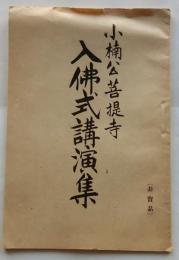 小楠公菩提寺
入佛式講演集
（非賣品）